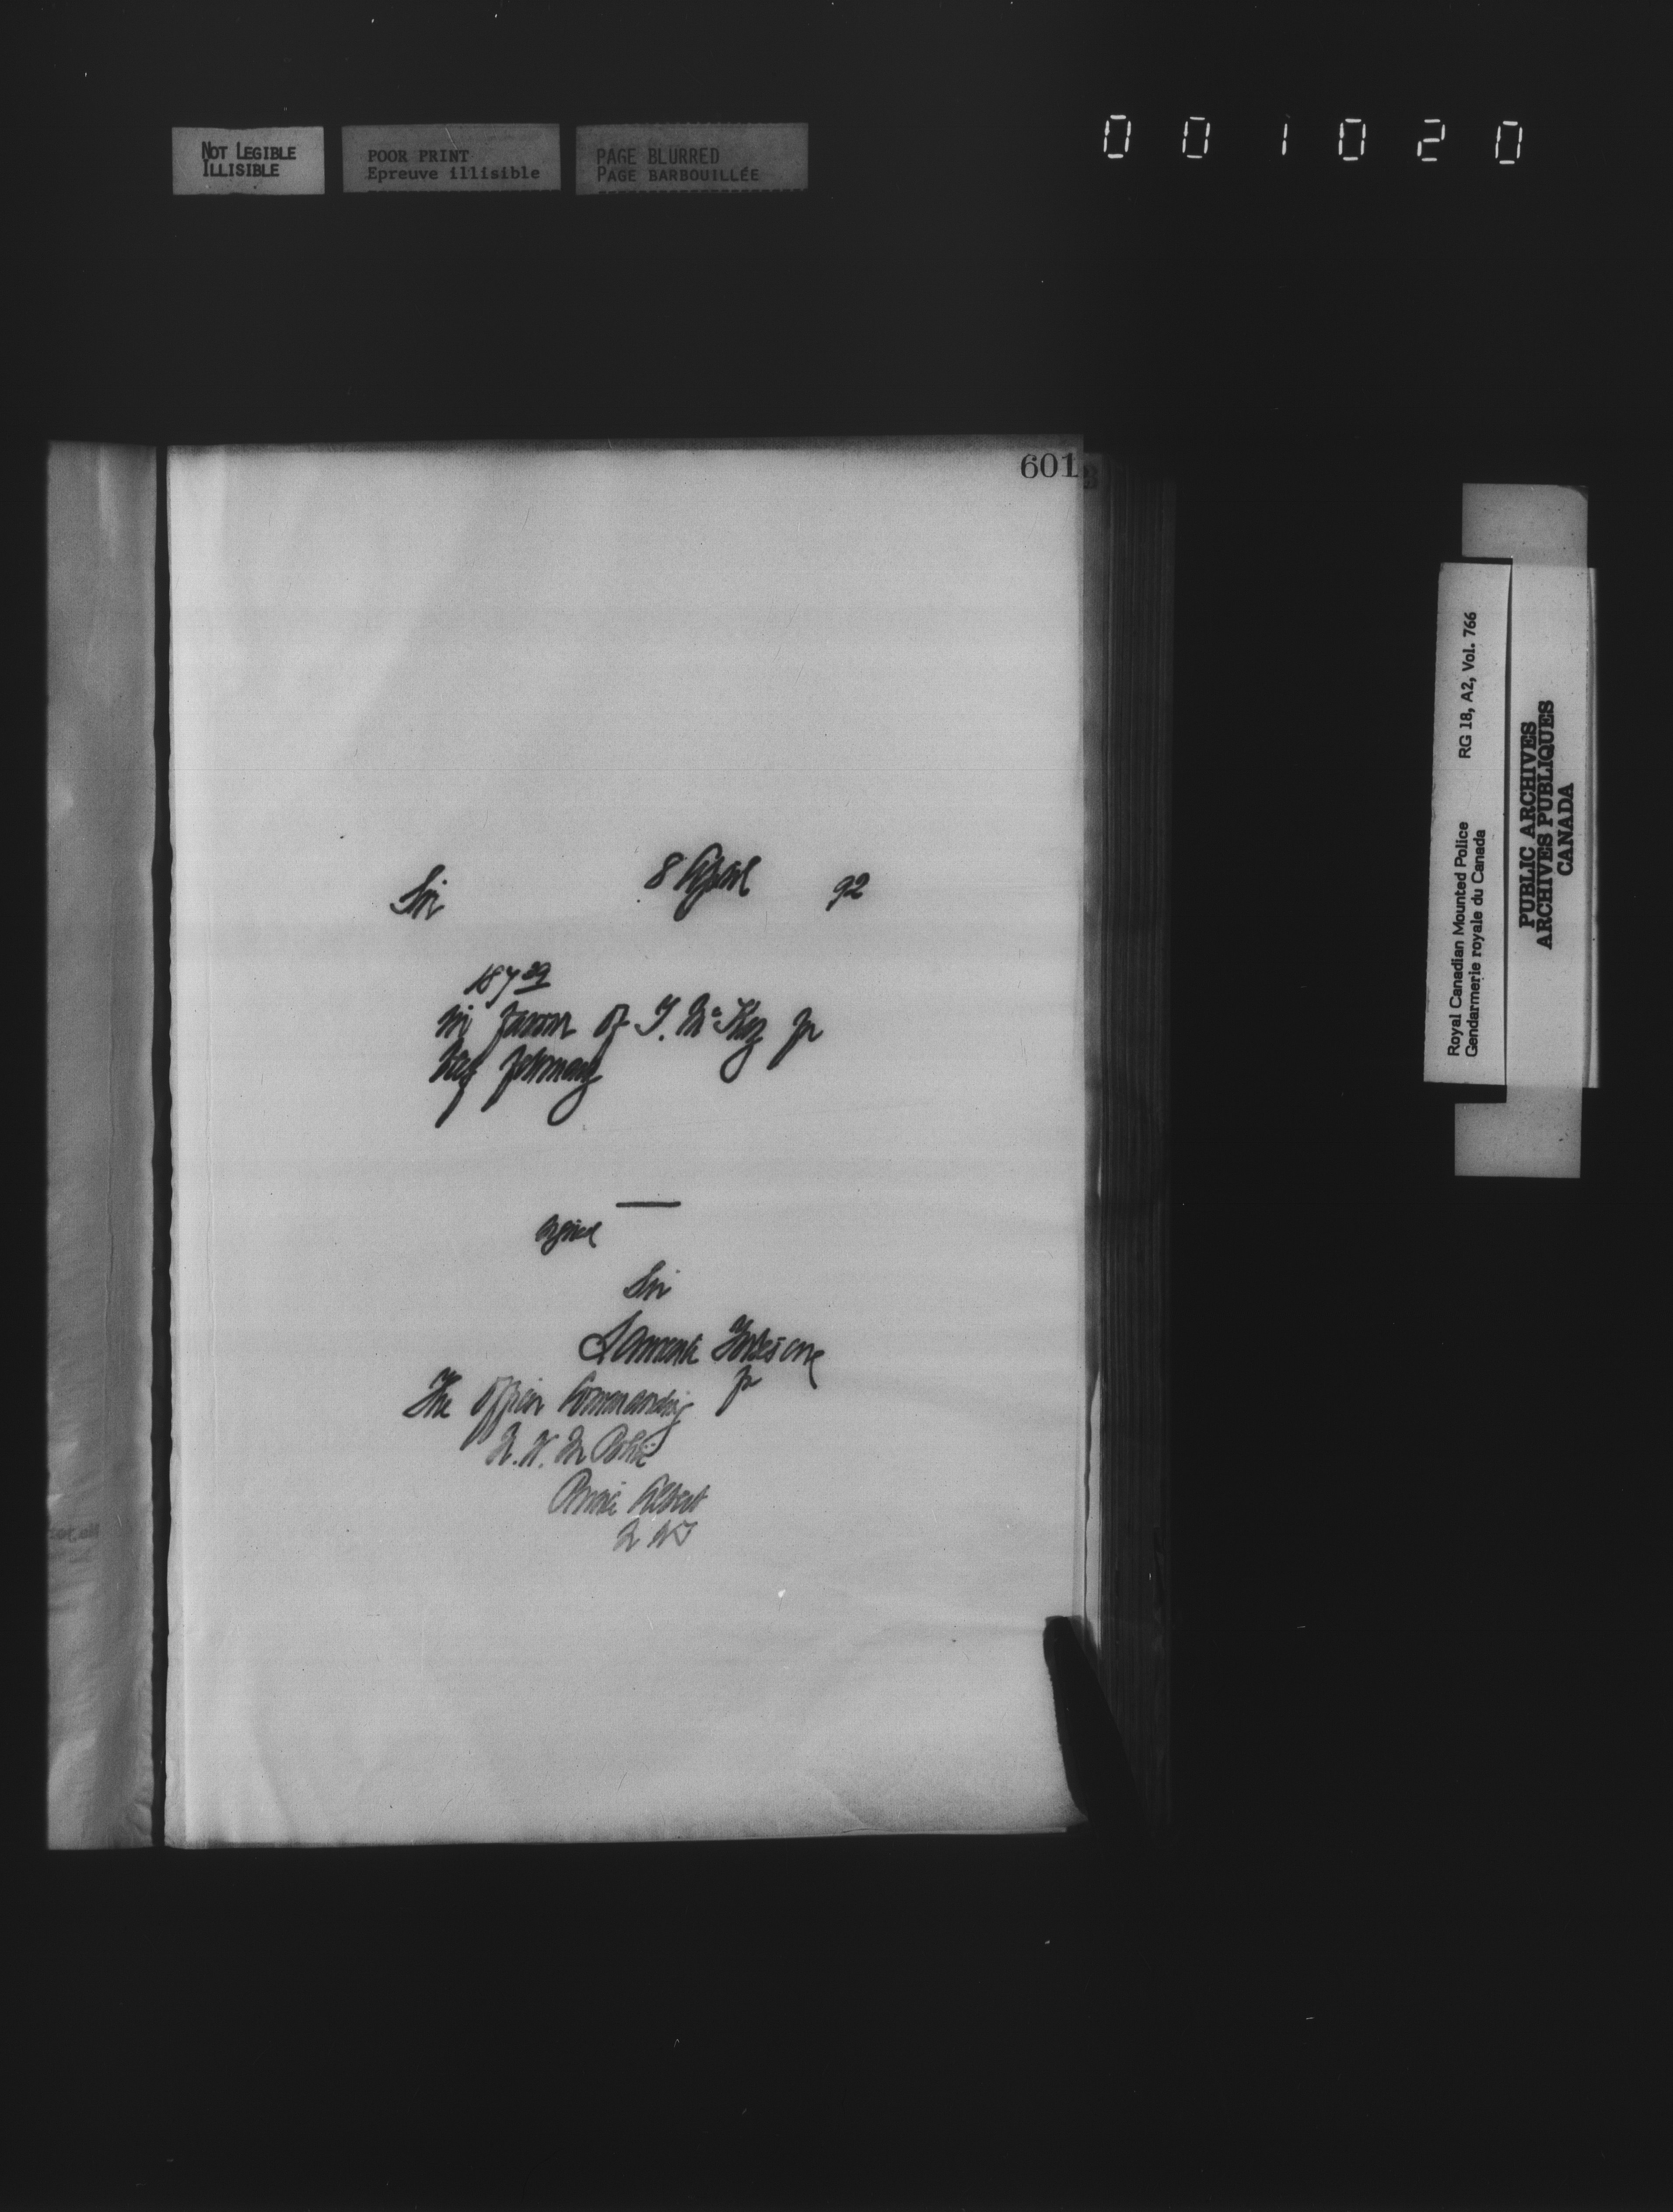 NOT LEGIBLE
ILLISIBLE
POOR PRINT
Epreuve illisible
PAGE BLURRED
PAGE BARBOUILLÉE
001020
601
8 April 92
Sir
187 29
in favour of T. McKay Jr
February
Sir
The Officer Commanding
N. W. M Police
Prince Albert
N W T
Royal Canadian Mounted Police RG 18, A2, Vol. 766
Gendarmerie royale du Canada
PUBLIC ARCHIVES
ARCHIVES PUBLIQUES
CANADA